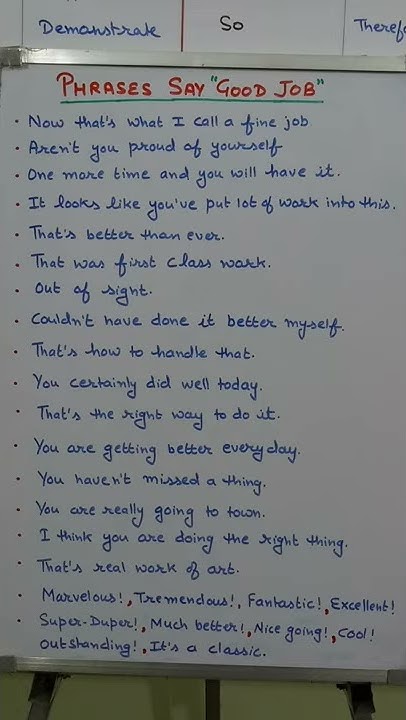 Demanstrate So Therefo
PHRASES SAY "GOOD JOB"
• Now that's what I call a fine job
• Aren't you proud of yourself
• One more time and you will have it.
• It looks like you've put lot of work into this.
• That's better than ever.
• That was first class work.
• Out of sight.
• Couldn't have done it better myself.
• That's how to handle that.
• You certainly did well today.
• That's the right way to do it.
• You are getting better everyday.
• You haven't missed a thing.
• You are really going to town.
• I think you are doing the right thing.
• That's real work of art.
• Marvelous!, Tremendous!, Fantastic!, Excellent!
• Super-Duper!, Much better!, Nice going!, Cool!
Outstanding!, It's a classic.